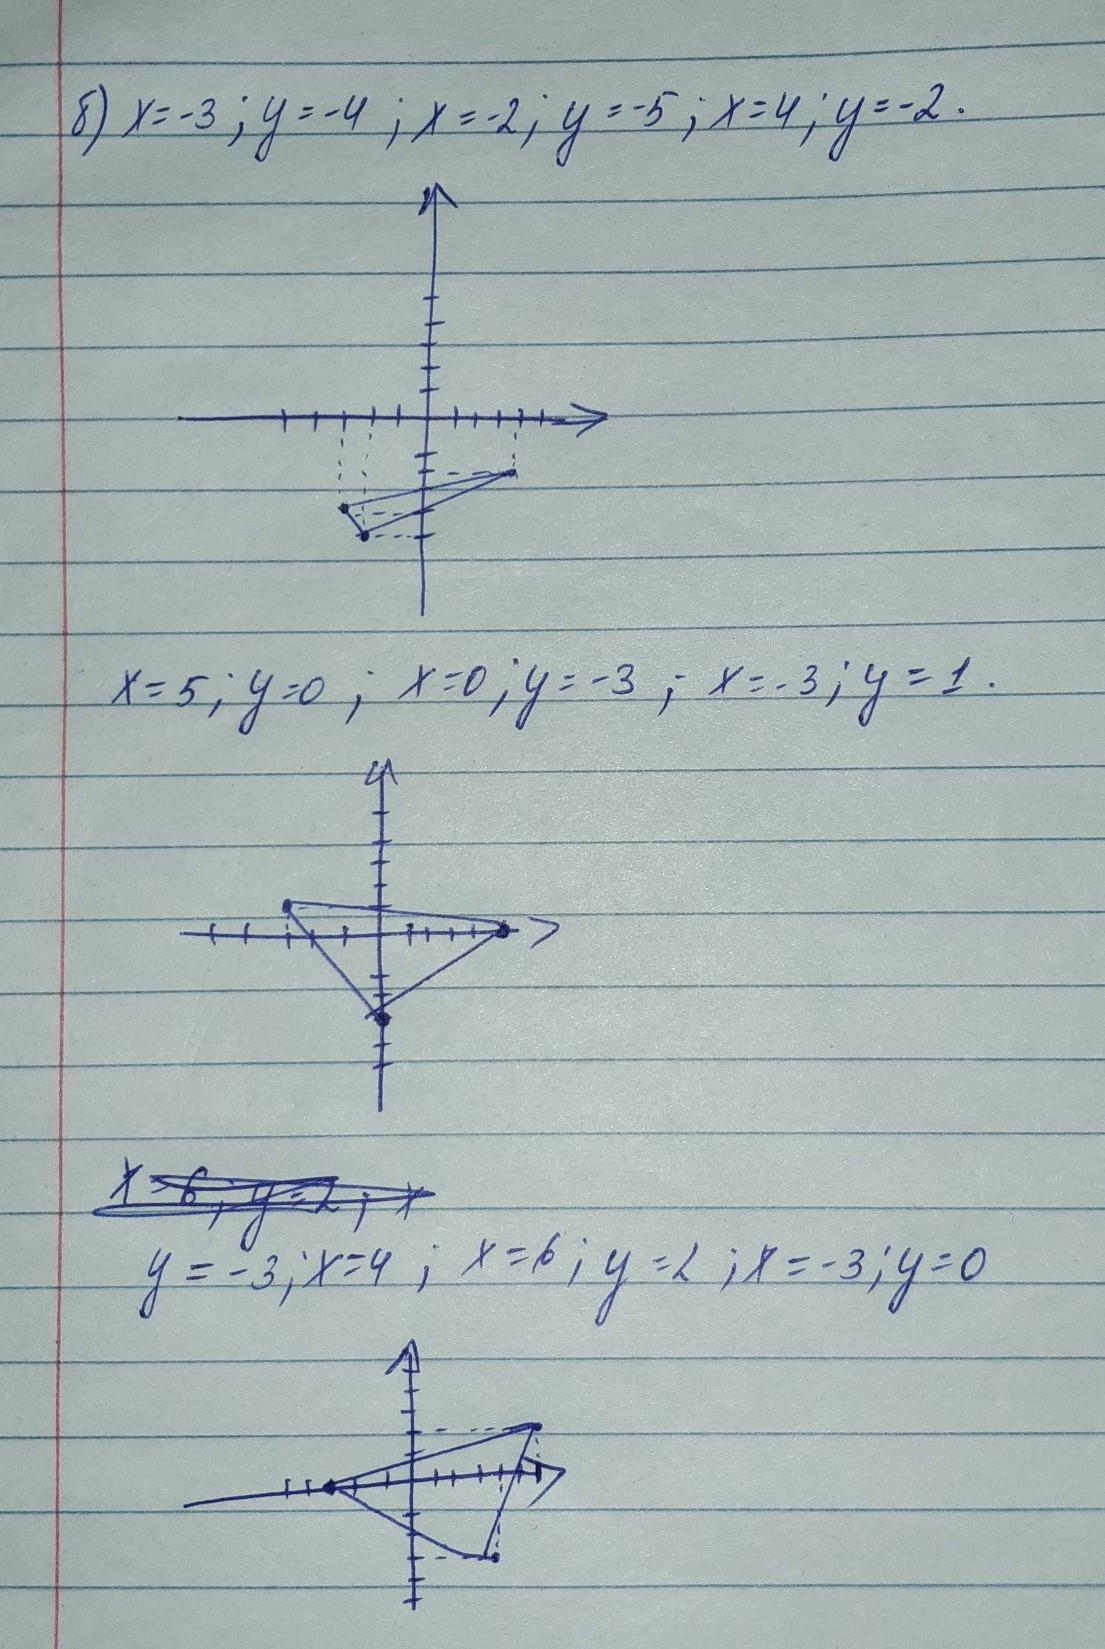 б) x=-3; y=-4; x=-2; y=-5; x=4; y=-2.
x=5; y=0; x=0; y=-3; x=-3; y=1.
x=6; y=2; x
y=-3; x=4; x=6; y=2; x=-3; y=0